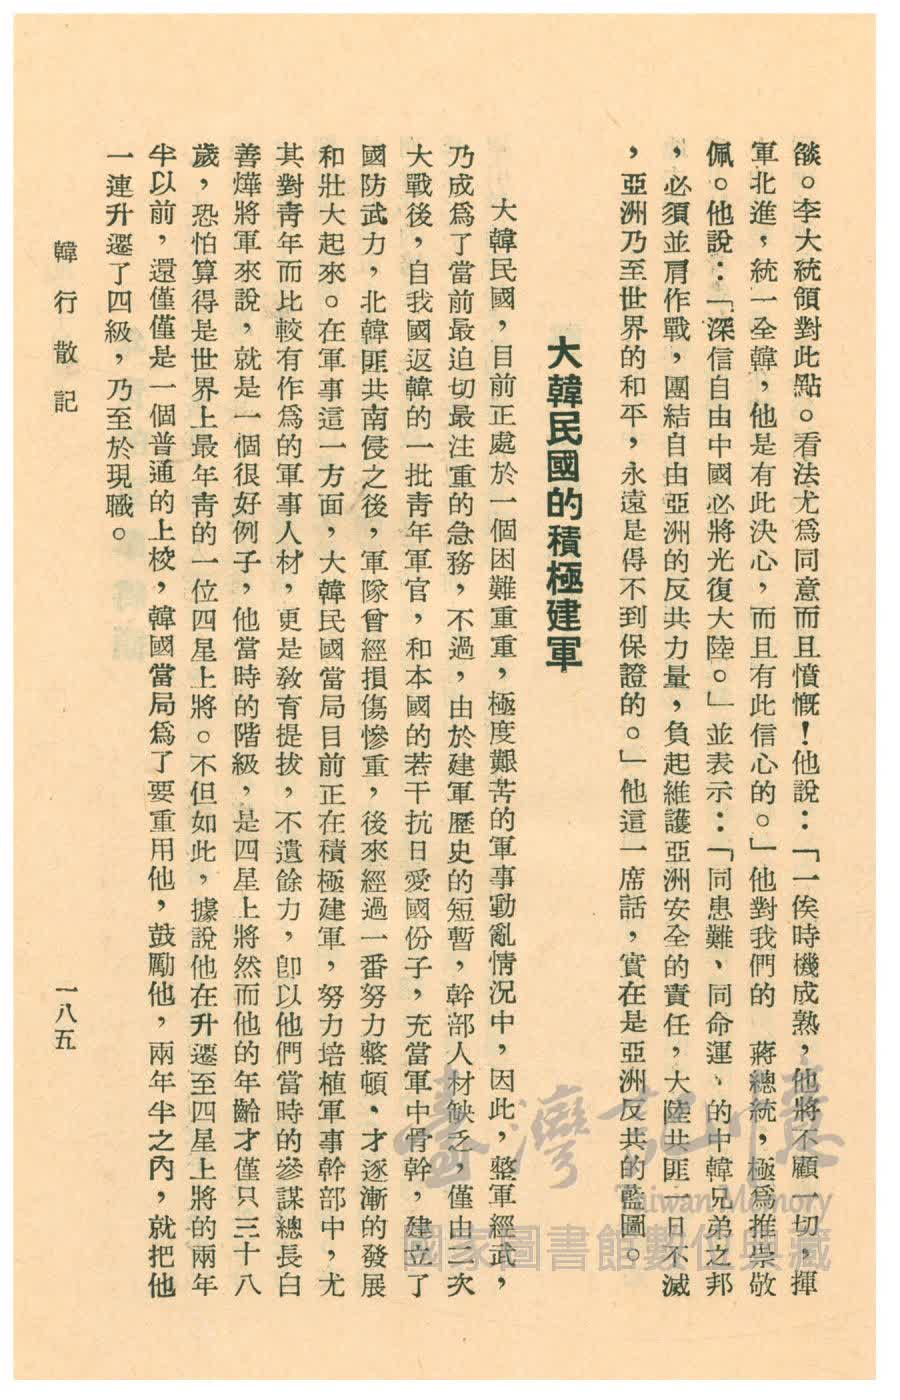 燄。李大統領對此點。看法尤爲同意而且憤慨！他說：「一俟時機成熟，他將不顧一切，揮
軍北進，統一全韓，他是有此決心，而且有此信心的。」他對我們的　蔣總統，極爲推崇敬
佩。他說：「深信自由中國必將光復大陸。」並表示：「同患難、同命運、的中韓兄弟之邦
，必須並肩作戰，團結自由亞洲的反共力量，負起維護亞洲安全的責任，大陸共匪一日不滅
，亞洲乃至世界的和平，永遠是得不到保證的。」他這一席話，實在是亞洲反共的藍圖。
大韓民國的積極建軍
大韓民國，目前正處於一個困難重重，極度艱苦的軍事動亂情況中，因此，整軍經武，
乃成爲了當前最迫切最注重的急務，不過，由於建軍歷史的短暫，幹部人材缺乏，僅由二次
大戰後，自我國返韓的一批靑年軍官，和本國的若干抗日愛國份子，充當軍中骨幹，建立了
國防武力，北韓匪共南侵之後，軍隊曾經損傷慘重，後來經過一番努力整頓、才逐漸的發展
和壯大起來。在軍事這一方面，大韓民國當局目前正在積極建軍，努力培植軍事幹部中，尤
其對靑年而比較有作爲的軍事人材，更是敎育提拔，不遺餘力，卽以他們當時的參謀總長白
善燁將軍來說，就是一個很好例子，他當時的階級，是四星上將然而他的年齡才僅只三十八
歲，恐怕算得是世界上最年靑的一位四星上將。不但如此，據說他在升遷至四星上將的兩年
半以前，還僅僅是一個普通的上校，韓國當局爲了要重用他，鼓勵他，兩年半之內，就把他
一連升遷了四級，乃至於現職。
韓行散記
一八五
臺灣記憶
Taiwan Memory
國家圖書館數位典藏